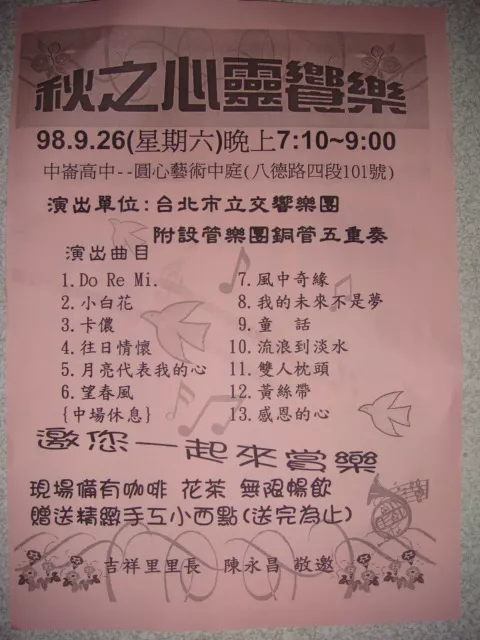 秋之心靈饗樂
98.9.26(星期六)晚上7:10~9:00
中崙高中--圓心藝術中庭(八德路四段101號)
演出單位:台北市立交響樂團
附設管樂團銅管五重奏
演出曲目
1.Do Re Mi.
2.小白花
3.卡儂
4.往日情懷
5.月亮代表我的心
6.望春風
{中場休息}
7.風中奇緣
8.我的未來不是夢
9.童 話
10.流浪到淡水
11.雙人枕頭
12.黃絲帶
13.感恩的心
邀您一起來賞樂
現場備有咖啡 花茶 無限暢飲
贈送精緻手工小西點(送完為止)
吉祥里里長 陳永昌 敬邀